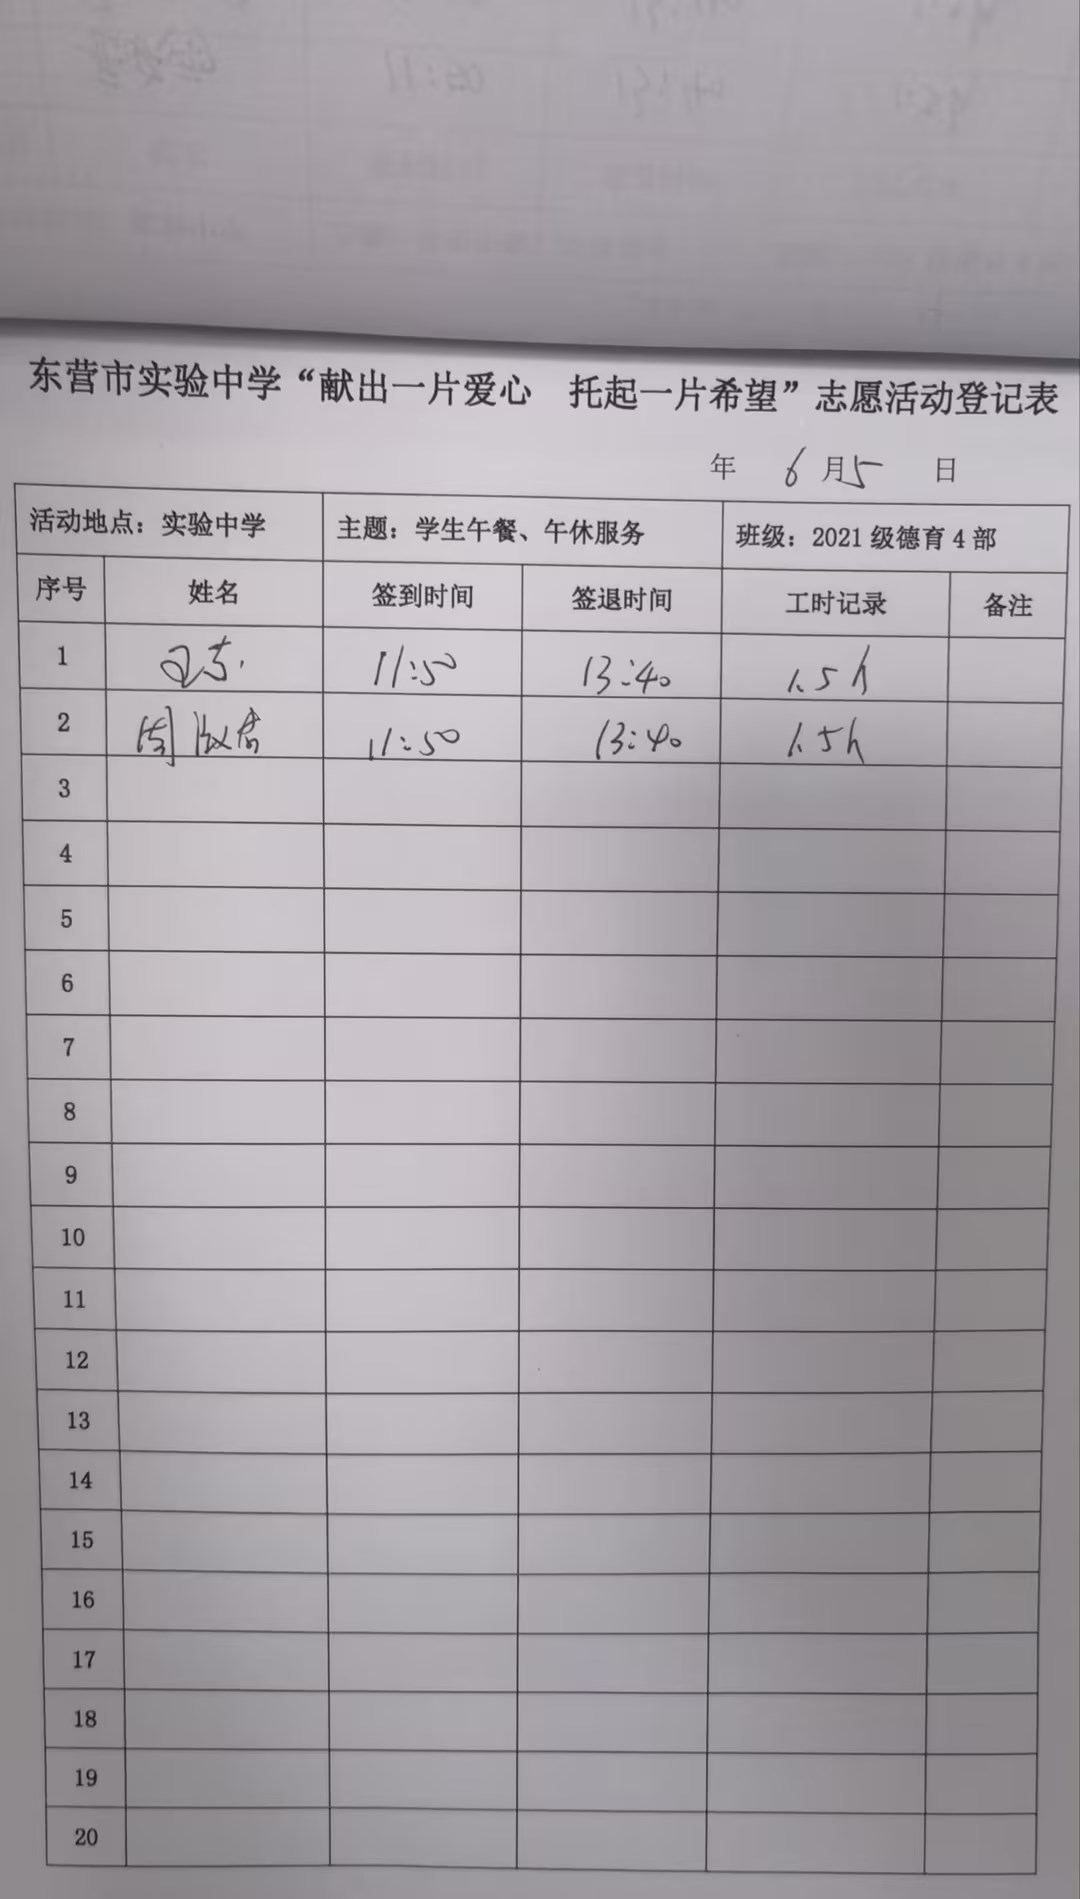 东营市实验中学“献出一片爱心 托起一片希望”志愿活动登记表
年 6月5 日
活动地点：实验中学 主题：学生午餐、午休服务 班级：2021级德育4部
序号 姓名 签到时间 签退时间 工时记录 备注
1 11:50 13:40 1.5h
2 周 11:50 13:40 1.5h
3
4
5
6
7
8
9
10
11
12
13
14
15
16
17
18
19
20